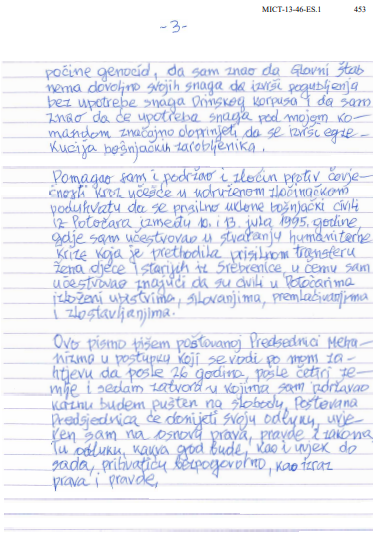 MICT-13-46-ES.1 453
-3-
počine genocid, da sam znao da Glavni štab
nema dovoljno svojih snaga da izvrši pogubljenja
bez upotrebe snaga Drinskog korpusa i da sam
znao da će upotreba snaga pod mojom ko-
mandom značajno doprinjeti da se izvrši egze-
kucija bošnjačkih zarobljenika.
Pomagao sam i podržao i zločin protiv čovje-
čnosti kroz učešće u udruženom zločinačkom
poduhvatu da se prisilno uklone bošnjački civili
iz Potočara između 10. i 13. jula 1995. godine,
gdje sam učestvovao u stvaranju humanitarne
krize koja je prethodila prisilnom transferu
žena djece i starijih iz Srebrenice, u čemu sam
učestvovao znajući da su civili u Potočarima
izloženi ubistvima, silovanjima, premlaćivanjima
i zlostavljanjima.
Ovo pismo pišem poštovanoj Predsednici Meha-
nizma u postupku koji se vodi po mom za-
htjevu da posle 26 godina, posle četiri ze-
mlje i sedam zatvora u kojima sam izdržavao
kaznu budem pušten na slobodu. Poštovana
Predsjednica će donijeti svoju odluku, uvje-
ren sam na osnovu prava, pravde i zakona
Tu odluku, kakva god bude, kao i uvjek do
sada, prihvatiću bespogovorno, kao izraz
prava i pravde.